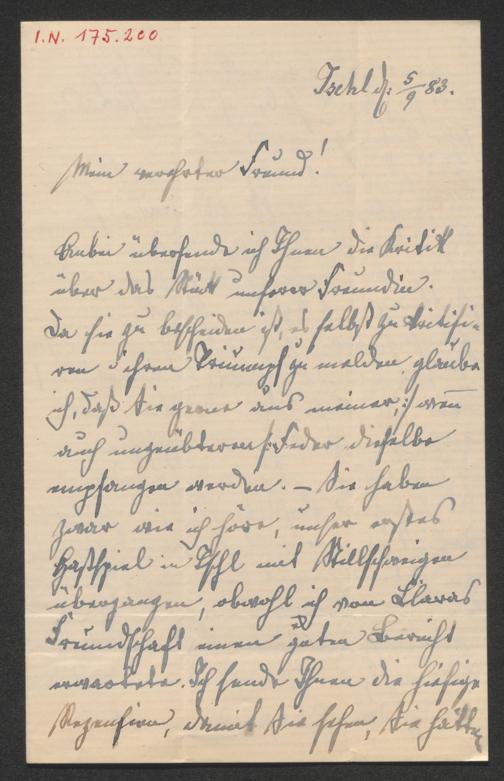 I.N. 175.200
Ischl d. 5/9 83.
Mein verehrter Freund!
Anbei übersende ich Ihnen die Kritik
über das Stück unserer Freundin.
Da sie zu bescheiden ist, es selbst zu kritisi-
ren ihren Triumpf zu melden, glaube
ich, daß Sie gerne aus meiner, /: wen̅
auch ungeübteren :/ Feder dieselbe
empfangen werden. – Sie haben
zwar wie ich höre, unser erstes
Gastspiel in Ischl mit Stillschweigen
übergangen, obwohl ich von Claras
Freundschaft einen guten Bericht
erwartete. Ich sende Ihnen die hiesige
Rezension, damit Sie sehen, Sie hätten